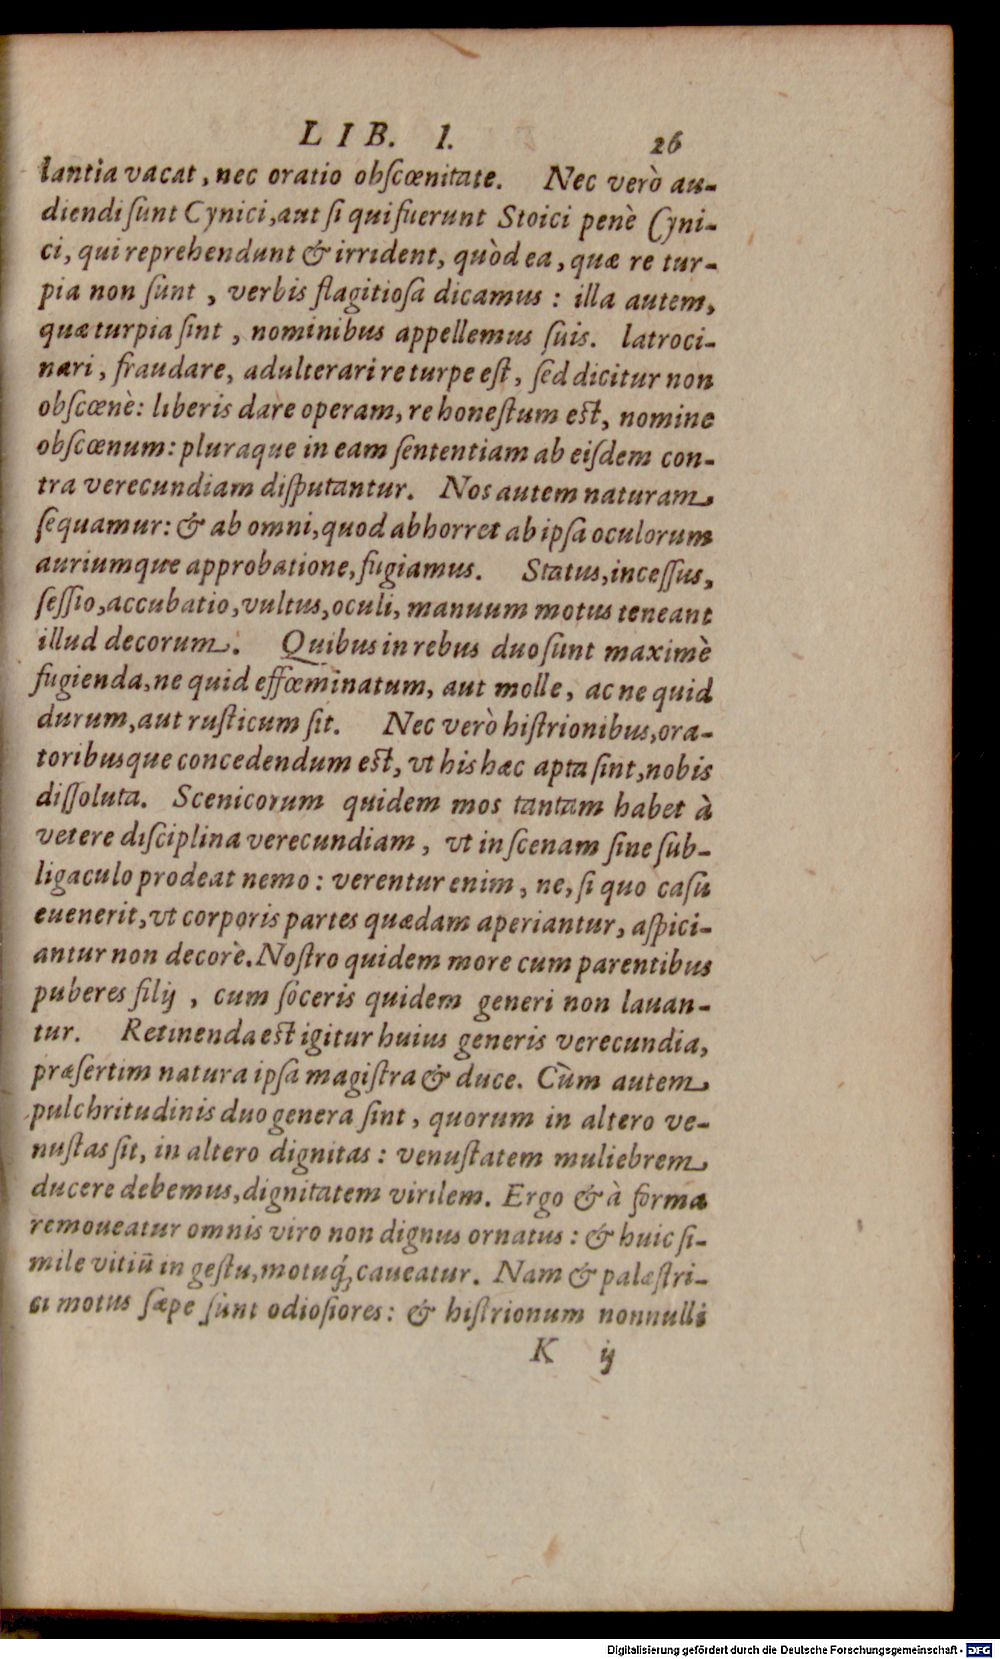 LIB. I. 26
lantia vacat, nec oratio obſcœnitate. Nec verò au-
diendi ſunt Cynici, aut ſi qui fuerunt Stoici penè Cyni-
ci, qui reprehendunt & irrident, quòd ea, quæ re tur-
pia non ſunt, verbis flagitioſa dicamus: illa autem,
quæ turpia ſint, nominibus appellemus ſuis. latroci-
nari, fraudare, adulterari re turpe eſt, ſed dicitur non
obſcœnè: liberis dare operam, re honeſtum eſt, nomine
obſcœnum: pluraque in eam ſententiam ab eiſdem con-
tra verecundiam diſputantur. Nos autem naturam
ſequamur: & ab omni, quod abhorret ab ipſa oculorum
auriumque approbatione, fugiamus. Status, inceſſus,
ſeſſio, accubatio, vultus, oculi, manuum motus teneant
illud decorum. Quibus in rebus duo ſunt maximè
fugienda, ne quid effœminatum, aut molle, ac ne quid
durum, aut ruſticum ſit. Nec verò hiſtrionibus, ora-
toribusque concedendum eſt, vt his hæc apta ſint, nobis
diſſoluta. Scenicorum quidem mos tantam habet à
vetere diſciplina verecundiam, vt in ſcenam ſine ſub-
ligaculo prodeat nemo: verentur enim, ne, ſi quo caſu
euenerit, vt corporis partes quædam aperiantur, aſpici-
antur non decorè. Noſtro quidem more cum parentibus
puberes filij, cum ſoceris quidem generi non lauan-
tur. Retinenda eſt igitur huius generis verecundia,
præſertim natura ipſa magiſtra & duce. Cùm autem
pulchritudinis duo genera ſint, quorum in altero ve-
nuſtas ſit, in altero dignitas: venuſtatem muliebrem
ducere debemus, dignitatem virilem. Ergo & à forma
remoueatur omnis viro non dignus ornatus: & huic ſi-
mile vitiū in geſtu, motuq́; caueatur. Nam & palæſtri-
ci motus ſæpe ſunt odioſiores: & hiſtrionum nonnulli
K ij
Digitalisierung gefördert durch die Deutsche Forschungsgemeinschaft - DFG